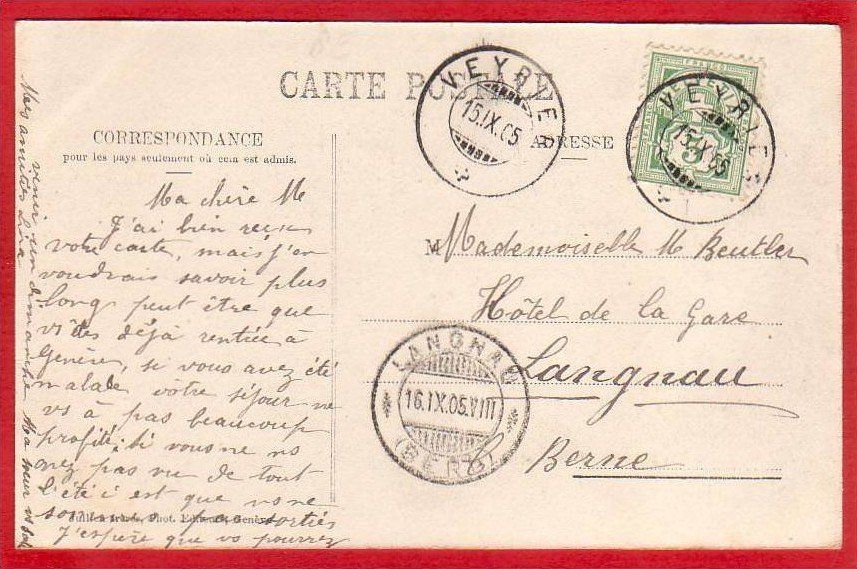 CARTE POSTALE
CORRESPONDANCE
pour les pays seulement où cela est admis.
ADRESSE
VEYRIER
15.IX.05
VEYRIER
15.IX.05
FRANCO
5
Ma chère M
J'ai bien reçu
votre carte, mais j'en
voudrais savoir plus
long peut être que
v êtes déjà rentiée à
Genève, si vous avez été
malade vôtre séjour ne
vs à pas beaucoup
profité, si vous ne ns
avez pas vu de tout
l'été i est que ns ne
sommes pas sorties
J'espère que vs pourrez
venir un dimanche Ma sœur vs
Mes amitiés
M Mademoiselle M Beutler
Hôtel de la Gare
Langnau
Ct Berne
LANGNAU
16.IX.05.VIII
(BERN)
Jullien frères, Phot. Editeurs, Genève